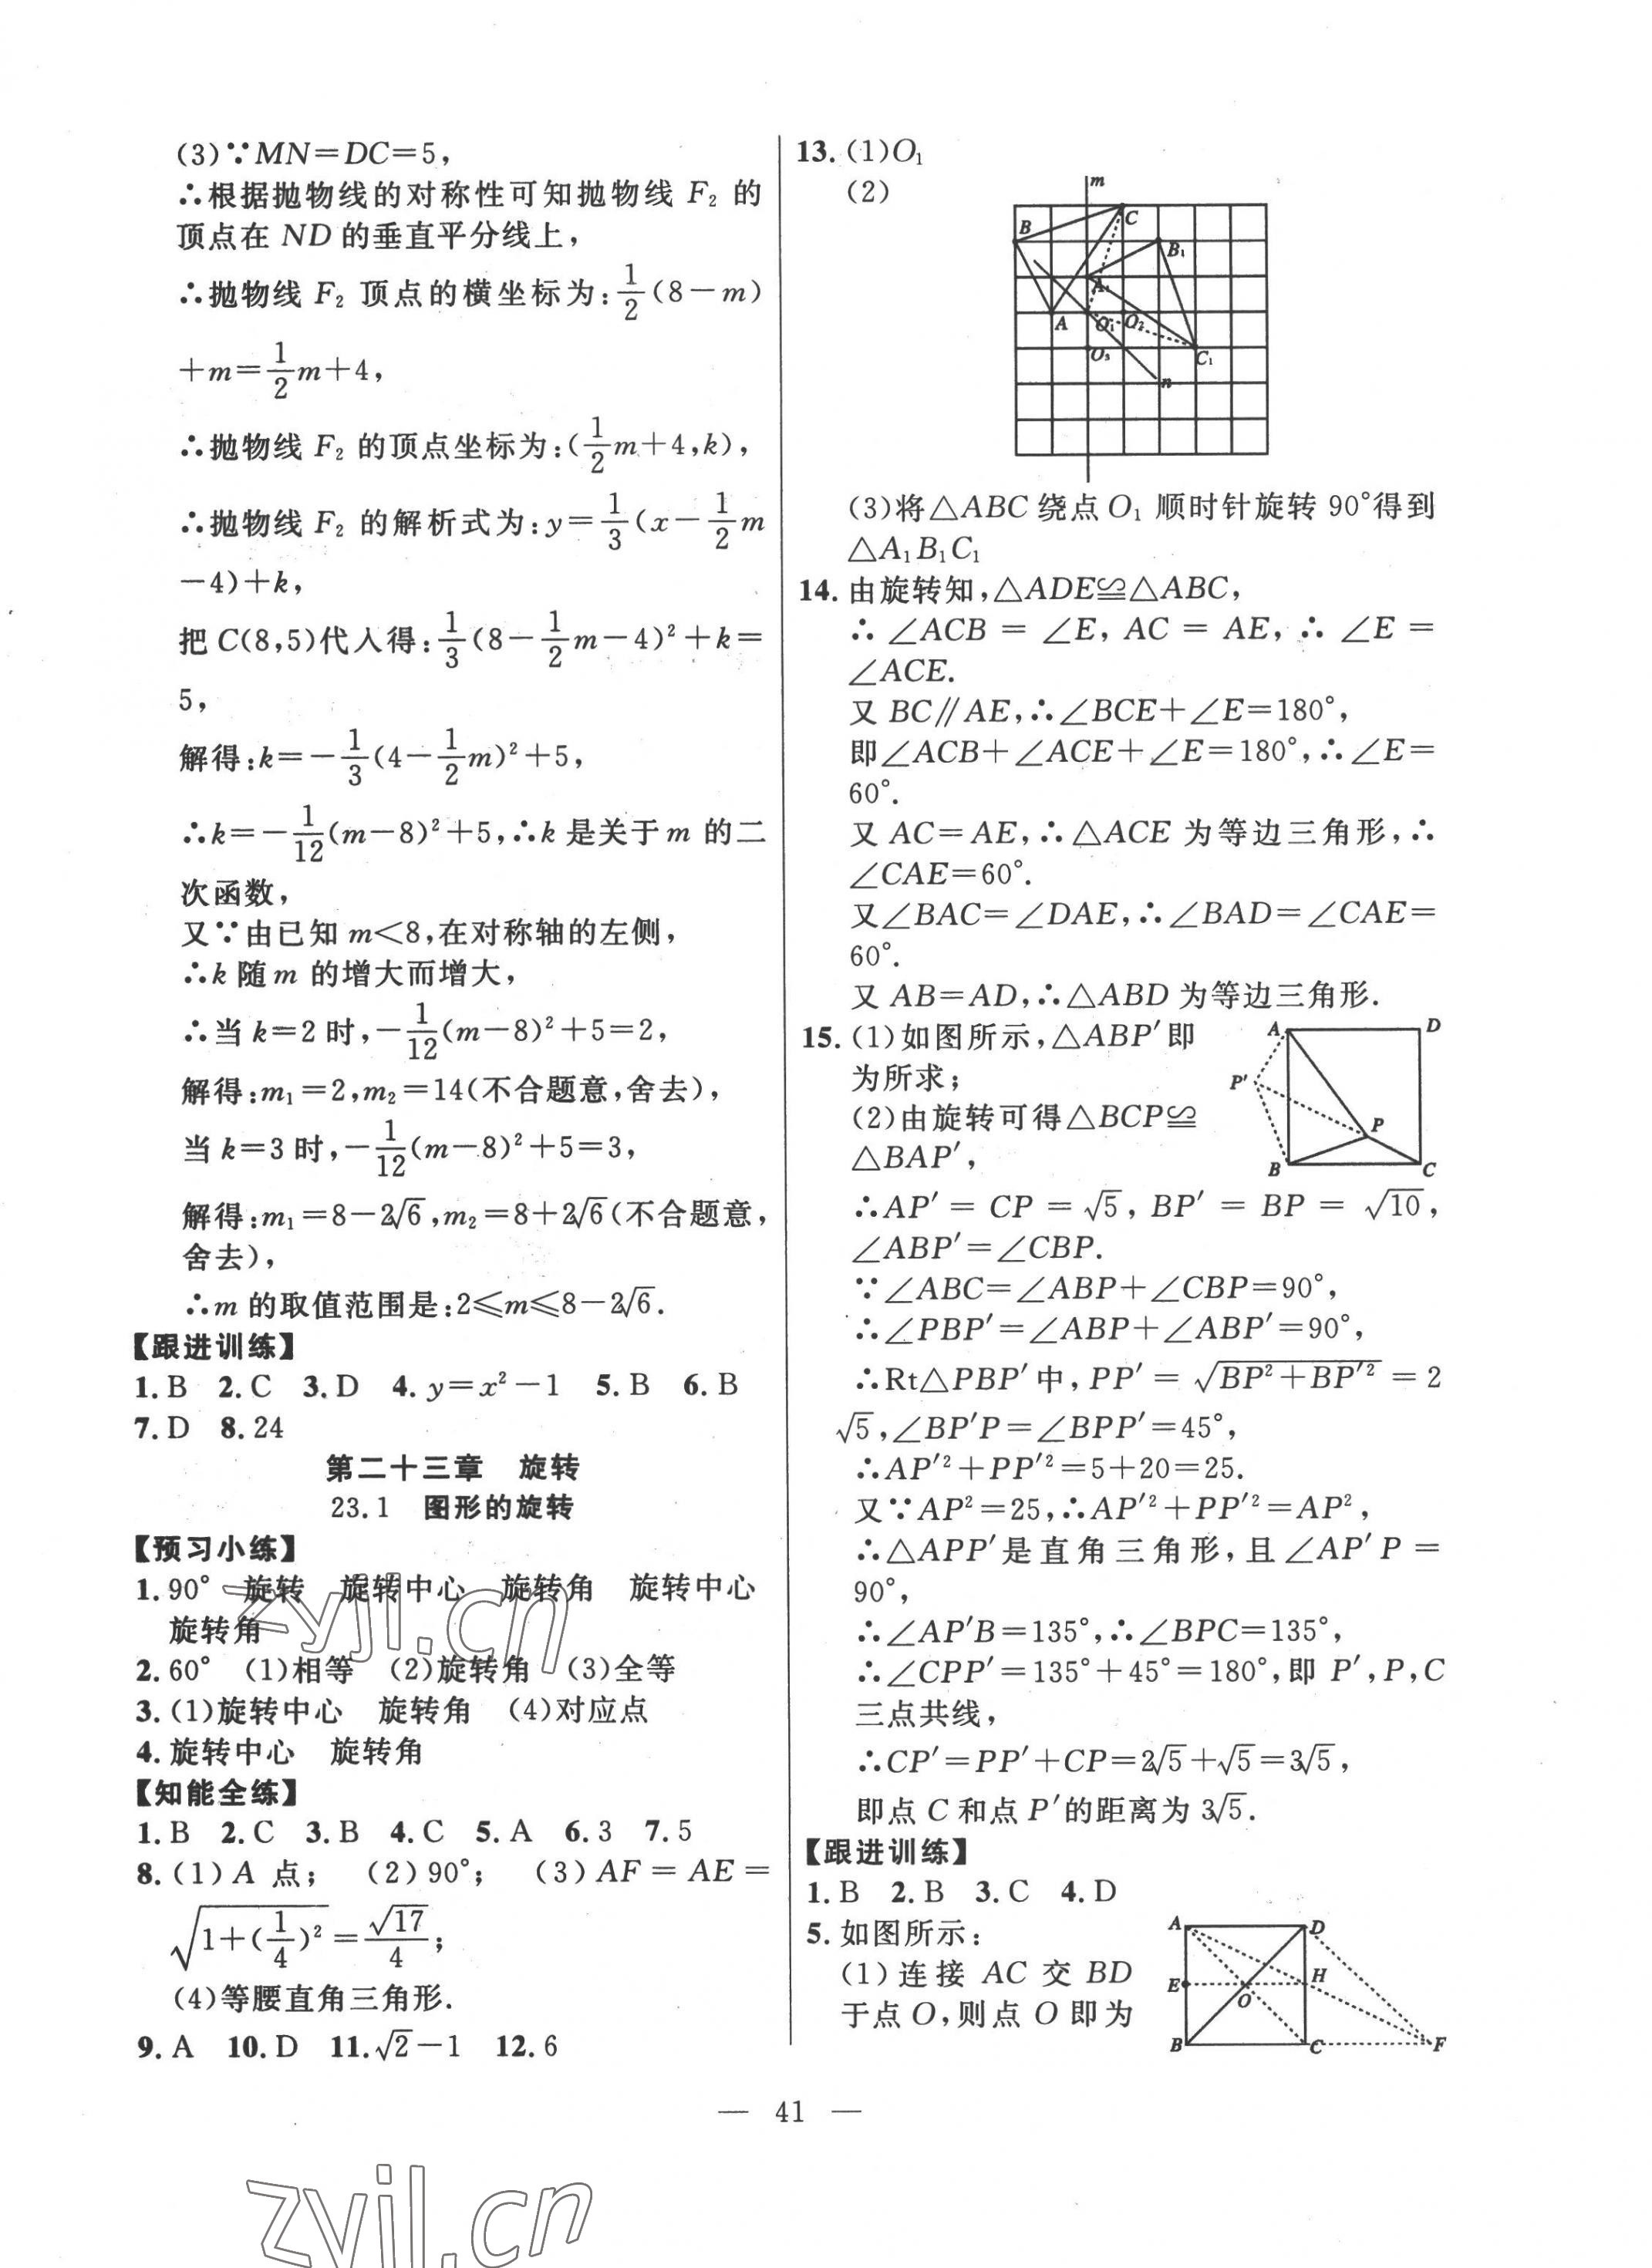 (3)∵MN=DC=5,
∴根据抛物线的对称性可知抛物线 F₂ 的
顶点在 ND 的垂直平分线上,
∴抛物线 F₂ 顶点的横坐标为:1/2(8-m)
+m=1/2m+4,
∴抛物线 F₂ 的顶点坐标为:(1/2m+4,k),
∴抛物线 F₂ 的解析式为:y=1/3(x-1/2m
-4)+k,
把 C(8,5)代入得:1/3(8-1/2m-4)²+k=
5,
解得:k=-1/3(4-1/2m)²+5,
∴k=-1/12(m-8)²+5,∴k 是关于 m 的二
次函数,
又∵由已知 m<8,在对称轴的左侧,
∴k 随 m 的增大而增大,
∴当 k=2 时,-1/12(m-8)²+5=2,
解得:m₁=2,m₂=14(不合题意,舍去),
当 k=3 时,-1/12(m-8)²+5=3,
解得:m₁=8-2√6,m₂=8+2√6(不合题意,
舍去),
∴m 的取值范围是:2≤m≤8-2√6.
【跟进训练】
1.B 2.C 3.D 4.y=x²-1 5.B 6.B
7.D 8.24
第二十三章 旋转
23.1 图形的旋转
【预习小练】
1.90° 旋转 旋转中心 旋转角 旋转中心
旋转角
2.60° (1)相等 (2)旋转角 (3)全等
3.(1)旋转中心 旋转角 (4)对应点
4.旋转中心 旋转角
【知能全练】
1.B 2.C 3.B 4.C 5.A 6.3 7.5
8.(1)A 点; (2)90°; (3)AF=AE=
√(1+(1/4)²)=√17/4;
(4)等腰直角三角形.
9.A 10.D 11.√2-1 12.6
13.(1)O₁
(2)
m
B
C
B₁
A₁
A
O₁
O₂
O₃
C₁
n
(3)将△ABC 绕点 O₁ 顺时针旋转 90°得到
△A₁B₁C₁
14.由旋转知,△ADE≌△ABC,
∴∠ACB=∠E,AC=AE,∴∠E=
∠ACE.
又 BC∥AE,∴∠BCE+∠E=180°,
即∠ACB+∠ACE+∠E=180°,∴∠E=
60°.
又 AC=AE,∴△ACE 为等边三角形,∴
∠CAE=60°.
又∠BAC=∠DAE,∴∠BAD=∠CAE=
60°.
又 AB=AD,∴△ABD 为等边三角形.
15.(1)如图所示,△ABP′即
为所求;
(2)由旋转可得△BCP≌
△BAP′,
A
D
P′
P
B
C
∴AP′=CP=√5,BP′=BP=√10,
∠ABP′=∠CBP.
∵∠ABC=∠ABP+∠CBP=90°,
∴∠PBP′=∠ABP+∠ABP′=90°,
∴Rt△PBP′中,PP′=√(BP²+BP′²)=2
√5,∠BP′P=∠BPP′=45°,
∴AP′²+PP′²=5+20=25.
又∵AP²=25,∴AP′²+PP′²=AP²,
∴△APP′是直角三角形,且∠AP′P=
90°,
∴∠AP′B=135°,∴∠BPC=135°,
∴∠CPP′=135°+45°=180°,即 P′,P,C
三点共线,
∴CP′=PP′+CP=2√5+√5=3√5,
即点 C 和点 P′的距离为 3√5.
【跟进训练】
1.B 2.B 3.C 4.D
5.如图所示:
(1)连接 AC 交 BD
于点 O,则点 O 即为
A
D
E
H
O
B
C
F
— 41 —
zyjl.cn
zyjl.cn